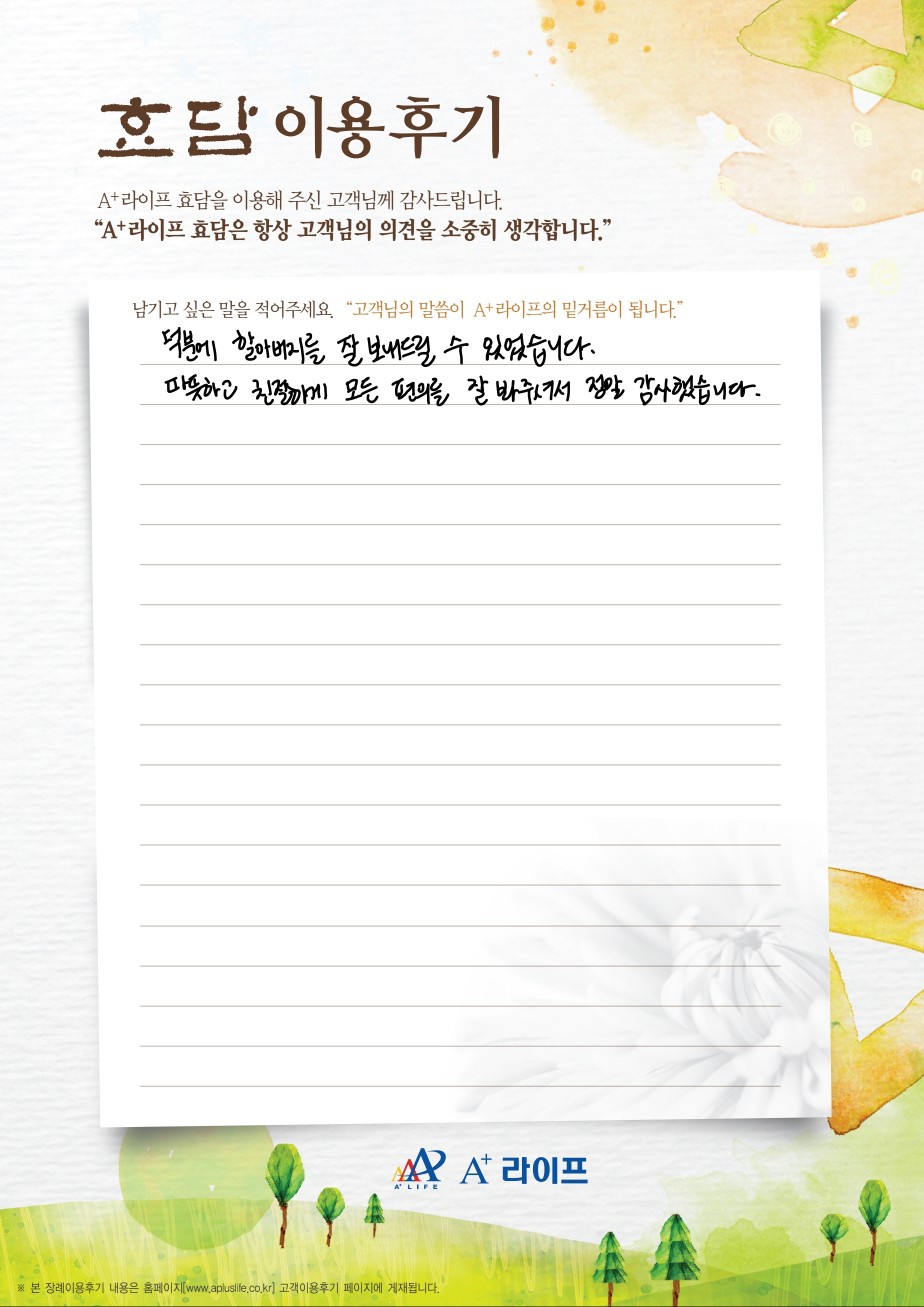 효담 이용후기
A+라이프 효담을 이용해 주신 고객님께 감사드립니다.
“A+라이프 효담은 항상 고객님의 의견을 소중히 생각합니다.”
남기고 싶은 말을 적어주세요. “고객님의 말씀이 A+라이프의 밑거름이 됩니다.”
덕분에 할아버지를 잘 보내드릴 수 있었습니다.
따뜻하고 친절하게 모든 편의를 잘 봐주셔서 정말 감사했습니다.
A+ LIFE A+ 라이프
※ 본 장례이용후기 내용은 홈페이지[www.apluslife.co.kr] 고객이용후기 페이지에 게재됩니다.